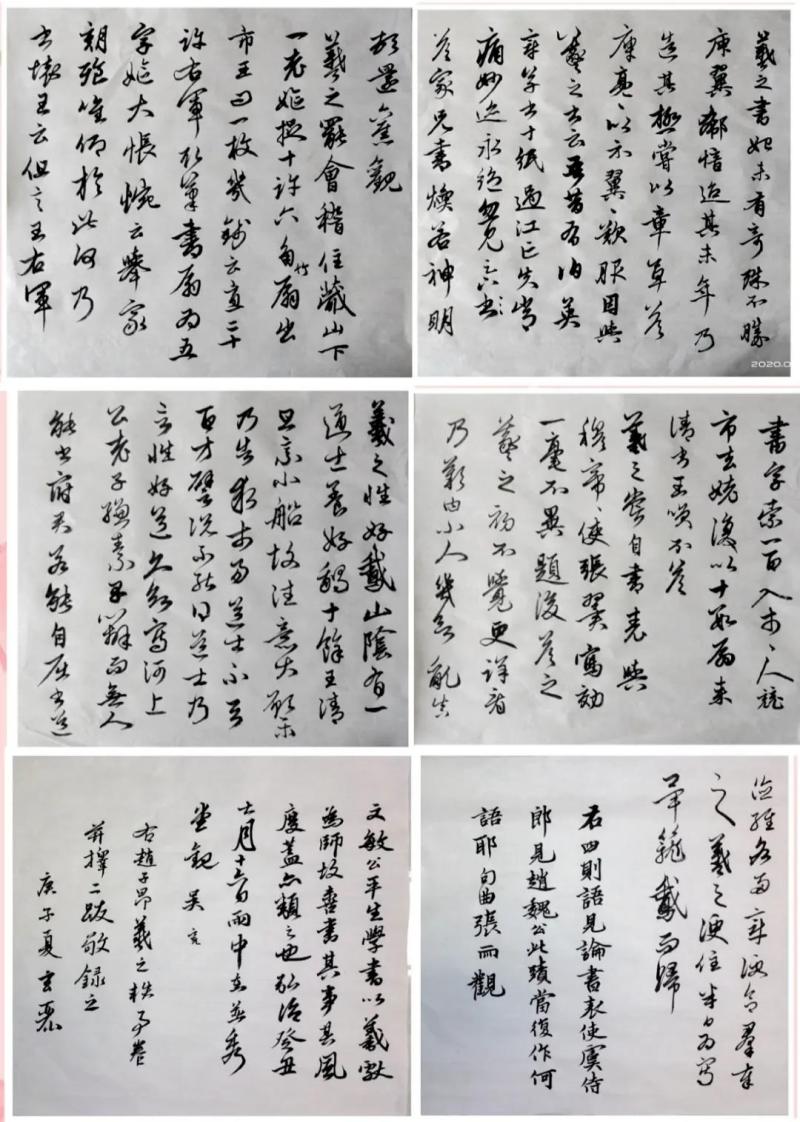 羲之書始未有奇殊不勝
庾翼郗愔迨其末年乃
造其極嘗以章草答
庾亮、以示翼、歎服因與
羲之書云吾昔有伯英
章草書十紙過江亡失常
痛妙迹永絕忽見足下書
答家兄書煥若神明
2020.0
頓還舊觀
羲之罷會稽住蕺山下
一老嫗捉十許六角竹扇出
市王問一枚幾錢云直二十
許右軍取筆書扇為五
字嫗大悵惋云舉家
朝飡惟仰於此何乃
書壞王云但言王右軍
書字索一百入市、人競
市去姥復以十數扇來
請書王笑不答
羲之嘗自書表與
穆帝、使張翼寫効
一毫不異題後答之
羲之初不覺更詳看
乃歎曰小人幾欲亂真
羲之性好鵞山陰有一
道士養好鵝十餘王清
旦乘小船故往意大願樂
乃告求市易道士不與
百方譬說不能得道士乃
言性好道久欲寫河上
公老子縑素早辦而無人
能書府君若能自屈書道
德經各兩章便合羣奉
之羲之便住半日為寫
畢籠鵞而歸
右四則語見論書表使虞侍
郎見趙魏公此蹟當復作何
語耶句曲張雨觀
文敏公平生學書以羲獻
為師故喜書其事其風
度蓋亦類之也弘治癸丑
七月十六日雨中在益秀
堂觀 吳寬
右趙子昂羲之軼事卷
并擇二跋敬錄之
庚子夏